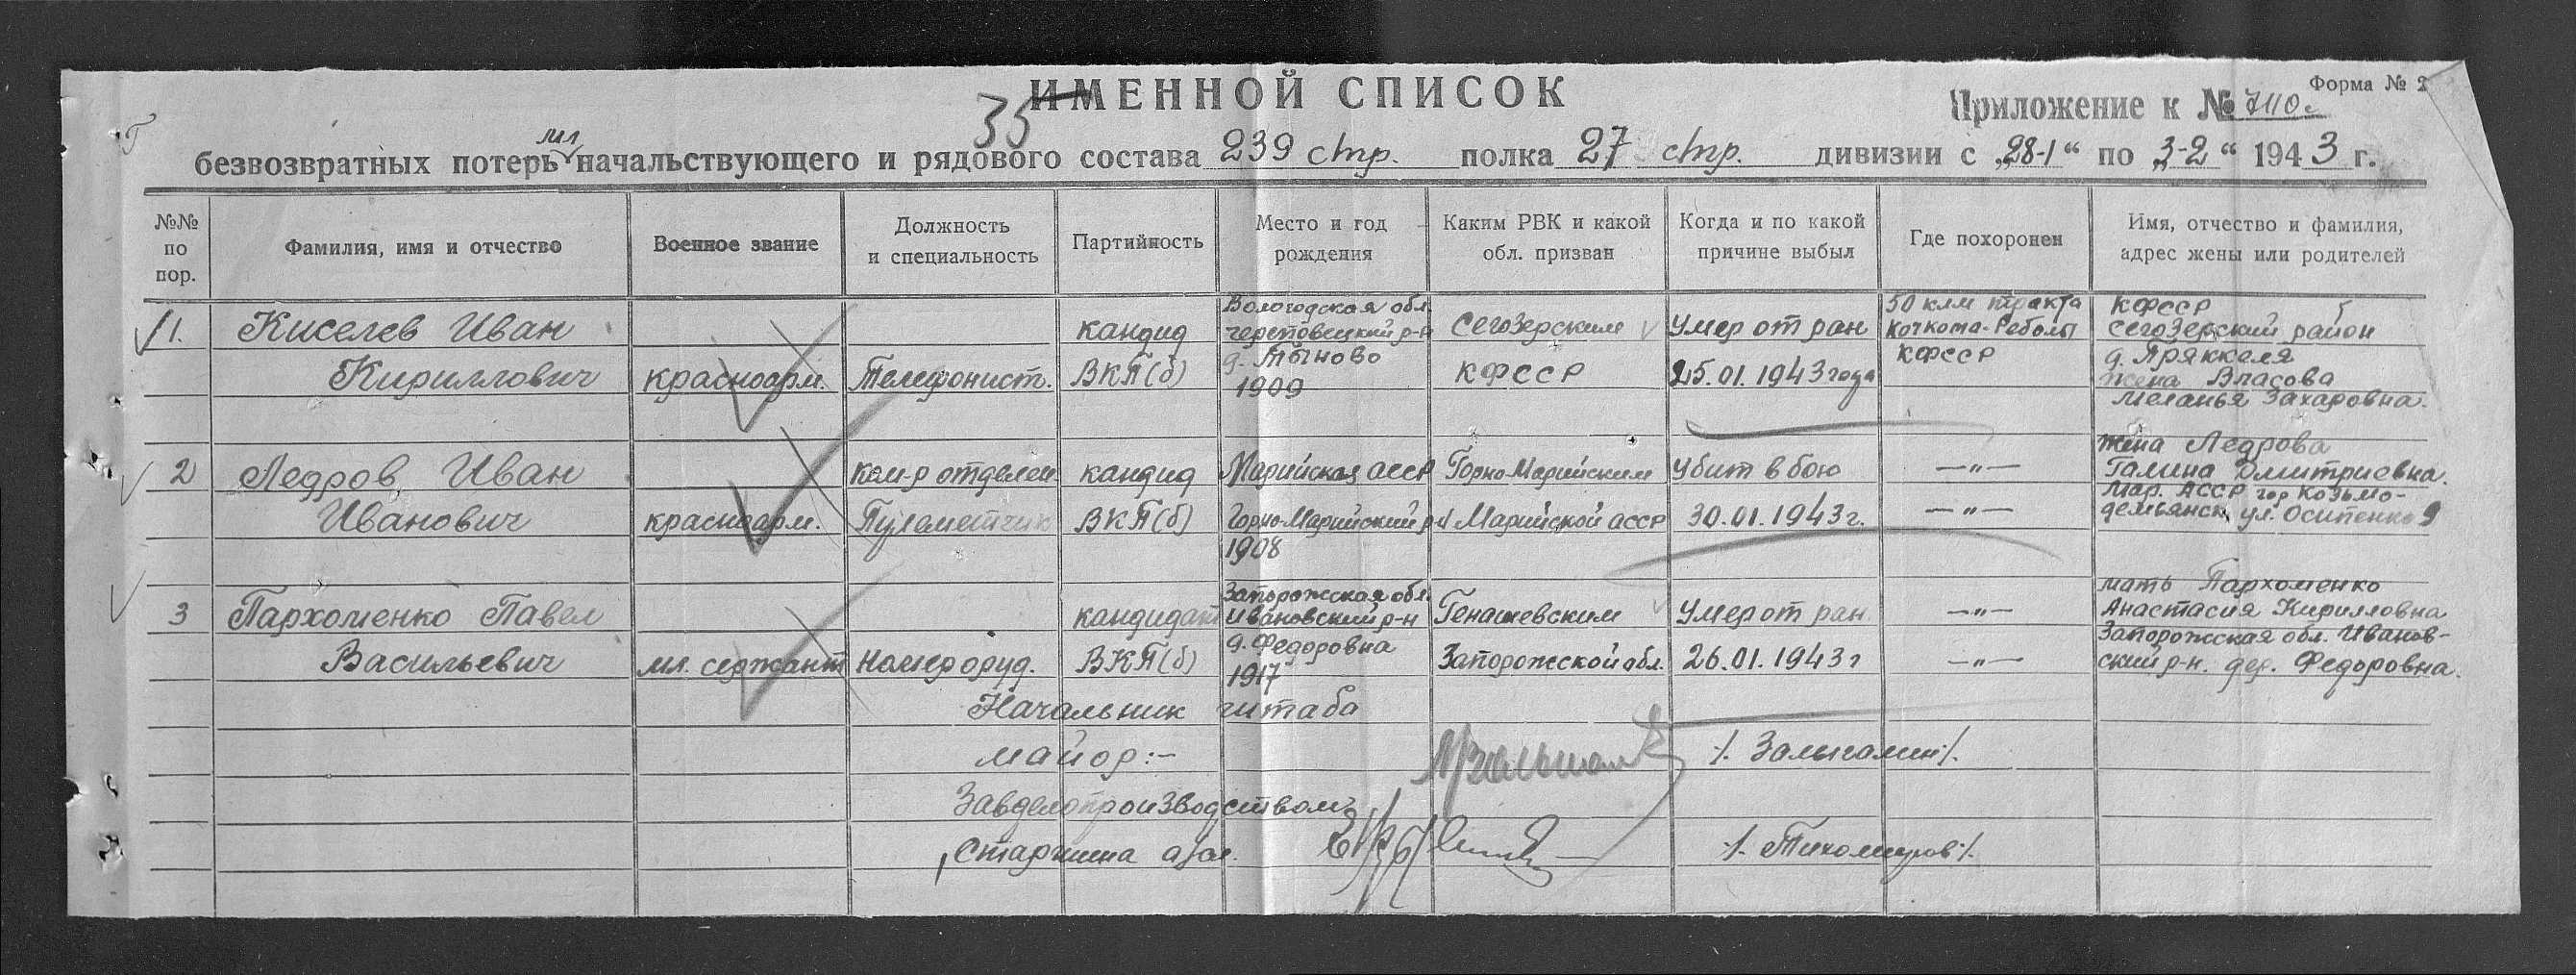 Форма № 2
ИМЕННОЙ СПИСОК
Приложение к № 7110с
35
мл
безвозвратных потерь начальствующего и рядового состава 239 стр. полка 27 стр. дивизии с „28-1“ по „3-2“ 1943 г.
№№ по пор.
Фамилия, имя и отчество
Военное звание
Должность и специальность
Партийность
Место и год рождения
Каким РВК и какой обл. призван
Когда и по какой причине выбыл
Где похоронен
Имя, отчество и фамилия, адрес жены или родителей
1.
Киселев Иван
Кириллович
красноарм.
Телефонист.
кандид
ВКП(б)
Вологодская обл
череповецкий р-н
д. Тыново
1909
Сегозерским
КФССР
Умер от ран
25.01.1943 года
50 клм тракта
Кочкома-Реболы
КФССР
КФССР
Сегозерский район
д. Пряккеля
жена Власова
Меланья Захаровна.
2
Ледров Иван
Иванович
красноарм.
Ком-р отделен.
Пулеметчик
кандид
ВКП(б)
Марийская АССР
Горно-Марийский р-н
1908
Горно-Марийским
Марийской АССР
Убит в бою
30.01.1943 г.
—„—
—„—
жена Ледрова
Галина Дмитриевна.
Мар. АССР гор Козьмо-
демьянск ул. Осипенко 9
3
Пархоменко Павел
Васильевич
мл. сержант
Номер оруд.
кандидат
ВКП(б)
Запорожская обл.
Ивановский р-н
д. Федоровна
1917
Генашевским
Запорожской обл.
Умер от ран
26.01.1943 г
—„—
—„—
мать Пархоменко
Анастасия Кирилловна
Запорожская обл. Иванов-
ский р-н. дер. Федоровна.
Начальник штаба
майор:-
Завделопроизводством
Старшина а/сл.
/. Тихомиров /.